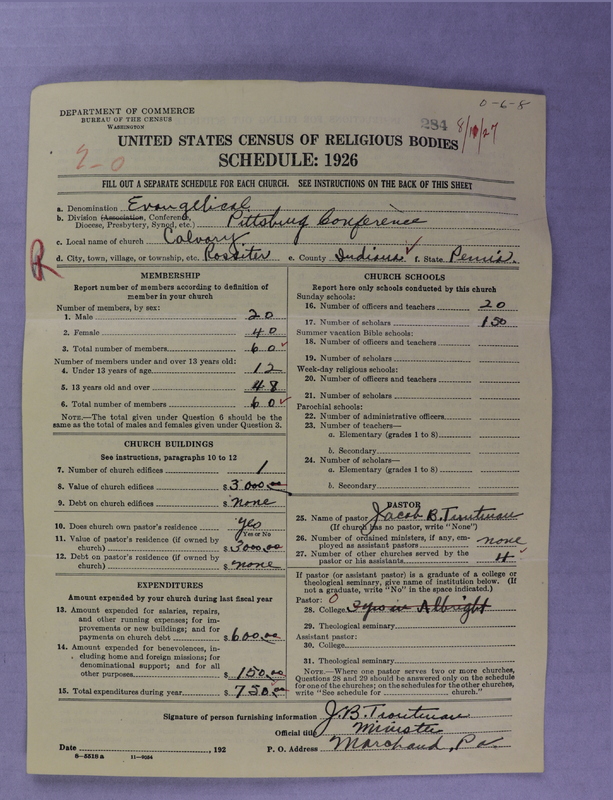 0-6-8
DEPARTMENT OF COMMERCE
BUREAU OF THE CENSUS
WASHINGTON
284
8/10/27
UNITED STATES CENSUS OF RELIGIOUS BODIES
SCHEDULE: 1926
2-0
FILL OUT A SEPARATE SCHEDULE FOR EACH CHURCH. SEE INSTRUCTIONS ON THE BACK OF THIS SHEET
a. Denomination Evangelical
b. Division (Association, Conference, Diocese, Presbytery, Synod, etc.) Pittsburg Conference
c. Local name of church Calvary
R
d. City, town, village, or township, etc. Rossiter e. County Indiana f. State Penn'a.
MEMBERSHIP
Report number of members according to definition of
member in your church
Number of members, by sex:
1. Male 20
2. Female 40
3. Total number of members 60
Number of members under and over 13 years old:
4. Under 13 years of age 12
5. 13 years old and over 48
6. Total number of members 60
NOTE.—The total given under Question 6 should be the
same as the total of males and females given under Question 3.
CHURCH BUILDINGS
See instructions, paragraphs 10 to 12
7. Number of church edifices 1
8. Value of church edifices $ 3000.00
9. Debt on church edifices $ none
10. Does church own pastor's residence yes
Yes or No
11. Value of pastor's residence (if owned by
church) $ 3000.00
12. Debt on pastor's residence (if owned by
church) $ none
EXPENDITURES
Amount expended by your church during last fiscal year
13. Amount expended for salaries, repairs,
and other running expenses; for im-
provements or new buildings; and for
payments on church debt $ 600.00
14. Amount expended for benevolences, in-
cluding home and foreign missions; for
denominational support; and for all
other purposes $ 150.00
15. Total expenditures during year $ 750.00
CHURCH SCHOOLS
Report here only schools conducted by this church
Sunday schools:
16. Number of officers and teachers 20
17. Number of scholars 150
Summer vacation Bible schools:
18. Number of officers and teachers
19. Number of scholars
Week-day religious schools:
20. Number of officers and teachers
21. Number of scholars
Parochial schools:
22. Number of administrative officers
23. Number of teachers—
a. Elementary (grades 1 to 8)
b. Secondary
24. Number of scholars—
a. Elementary (grades 1 to 8)
b. Secondary
PASTOR
25. Name of pastor Jacob B. Troutman
(If church has no pastor, write "None")
26. Number of ordained ministers, if any, em-
ployed as assistant pastors none
27. Number of other churches served by the
pastor or his assistants 4
If pastor (or assistant pastor) is a graduate of a college or
theological seminary, give name of institution below. (If
not a graduate, write "No" in the space indicated.)
Pastor: 0
28. College Albright
29. Theological seminary
Assistant pastor:
30. College
31. Theological seminary
NOTE.—Where one pastor serves two or more churches,
Questions 28 and 29 should be answered only on the schedule
for one of the churches; on the schedules for the other churches,
write "See schedule for church."
Signature of person furnishing information J. B. Troutman
Official title Minister
Date , 192 P. O. Address Marchand, Pa.
8-5518 a 11-9024